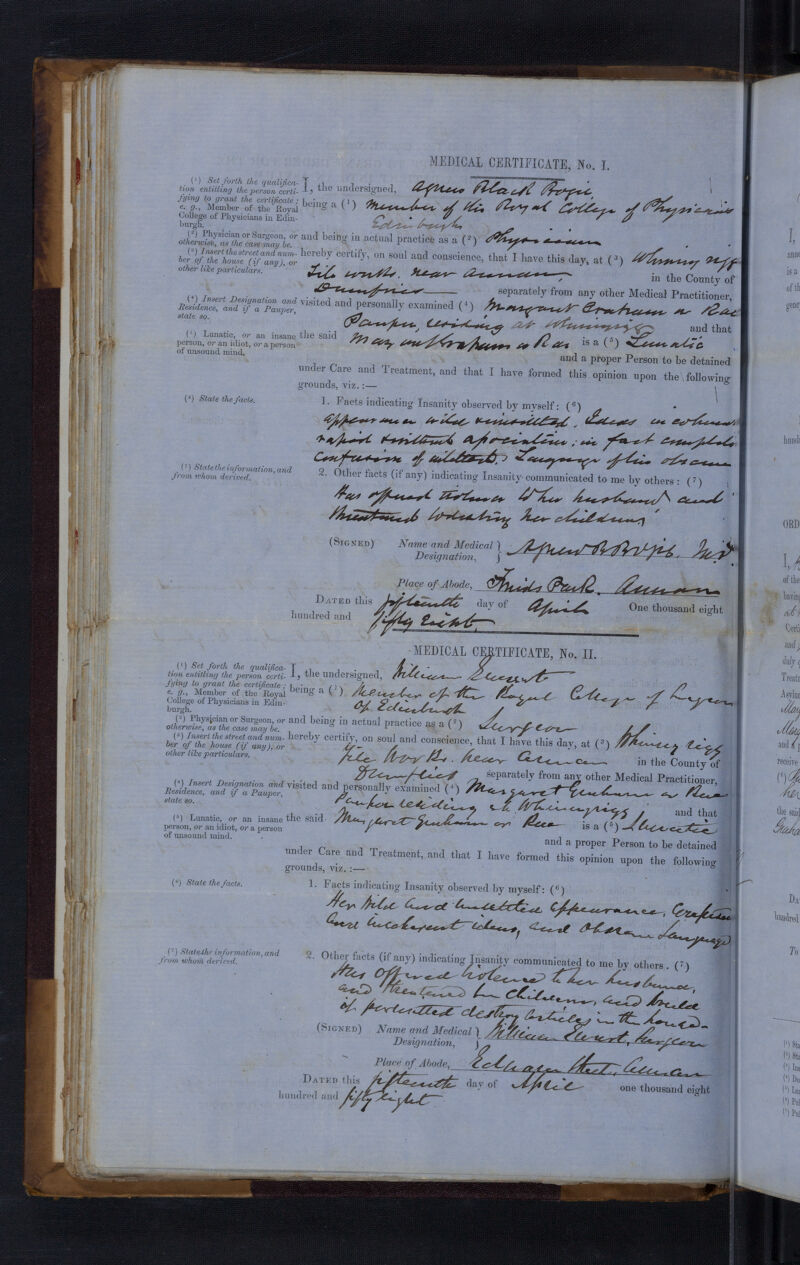 MEDICAL CERTIFICATE, No. I.
(¹) Set forth the qualifica-
tion entitling the person certi-
fying to grant the certificate;
e. g., Member of the Royal
College of Physicians in Edin-
burgh.
I, the undersigned, Agnew Black
being a (¹) Member of the Royal College of Physicians
Edinburgh
(²) Physician or Surgeon, or
otherwise, as the case may be.
and being in actual practice as a (²) Physician
(³) Insert the street and num-
ber of the house (if any), or
other like particulars.
hereby certify, on soul and conscience, that I have this day, at (³) Whinny rigg
Tile works. near Annan in the County of
Dumfries separately from any other Medical Practitioner,
(⁴) Insert Designation and
Residence, and if a Pauper,
state so.
visited and personally examined (⁴) Margaret Graham or Rae
Pauper, residing at Whinnyrigg and that
(⁵) Lunatic, or an insane
person, or an idiot, or a person
of unsound mind.
the said Margaret Graham or Rae is a (⁵) Lunatic
and a proper Person to be detained
under Care and Treatment, and that I have formed this opinion upon the following
grounds, viz. :—
(⁶) State the facts.
1. Facts indicating Insanity observed by myself: (⁶)
appearance wild & unsettled. Ideas incoherent
rapid & without association; in fact complete
confusion of Language obscene
(⁷) State the information, and
from whom derived.
2. Other facts (if any) indicating Insanity communicated to me by others: (⁷)
Has offered violence to her husband and
threatened her children
(SIGNED) Name and Medical
Designation, Agnew B M.D.
Place of Abode, Park. Annan
DATED this fifteenth day of April One thousand eight
hundred and fifty eight
MEDICAL CERTIFICATE, No. II.
(¹) Set forth the qualifica-
tion entitling the person certi-
fying to grant the certificate;
e. g., Member of the Royal
College of Physicians in Edin-
burgh.
I, the undersigned, William
being a (¹) Member of the Royal College of Surgeons
of Edinburgh
(²) Physician or Surgeon, or
otherwise, as the case may be.
and being in actual practice as a (²) Surgeon
(³) Insert the street and num-
ber of the house (if any), or
other like particulars.
hereby certify, on soul and conscience, that I have this day, at (³) Whinny rigg
Tile Works. near Annan in the County of
Dumfries separately from any other Medical Practitioner,
(⁴) Insert Designation and
Residence, and if a Pauper,
state so.
visited and personally examined (⁴) Margaret Graham or Rae
Pauper residing at Whinnyrigg and that
(⁵) Lunatic, or an insane
person, or an idiot, or a person
of unsound mind.
the said Margaret Graham or Rae is a (⁵) Lunatic
and a proper Person to be detained
under Care and Treatment, and that I have formed this opinion upon the following
grounds, viz. :—
(⁶) State the facts.
1. Facts indicating Insanity observed by myself: (⁶)
Her Wild and unsettled appearance, Confused
and incoherent ideas, and Obscene Language
(⁷) State the information, and
from whom derived.
2. Other facts (if any) indicating Insanity communicated to me by others. (⁷)
Has Offered violence to her husband,
and threatened her Children, and would
if permitted destroy articles in the house.
(SIGNED) Name and Medical
Designation, William Surgeon
Place of Abode, Street, Annan
DATED this fifteenth day of April one thousand eight
hundred and fifty eight